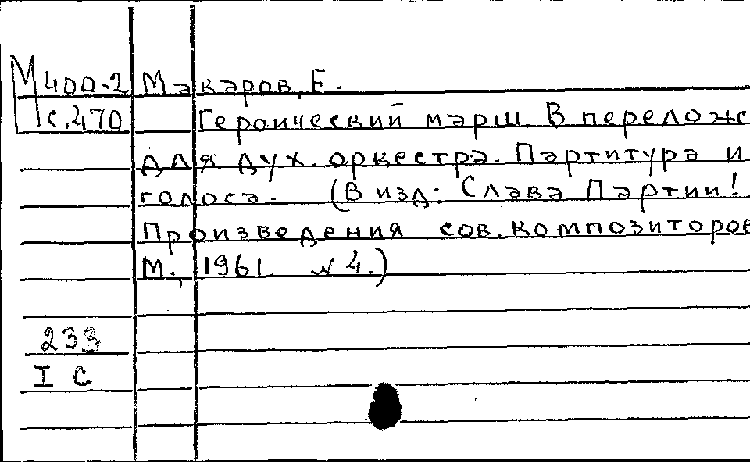 М 400-2 Макаров, Е.
с.470 Героический марш. В перелож
для дух. оркестра. Партитура и
голоса. (В изд: Слава Партии!
Произведения сов. композиторов
М., 1961 № 4.)
233
I С